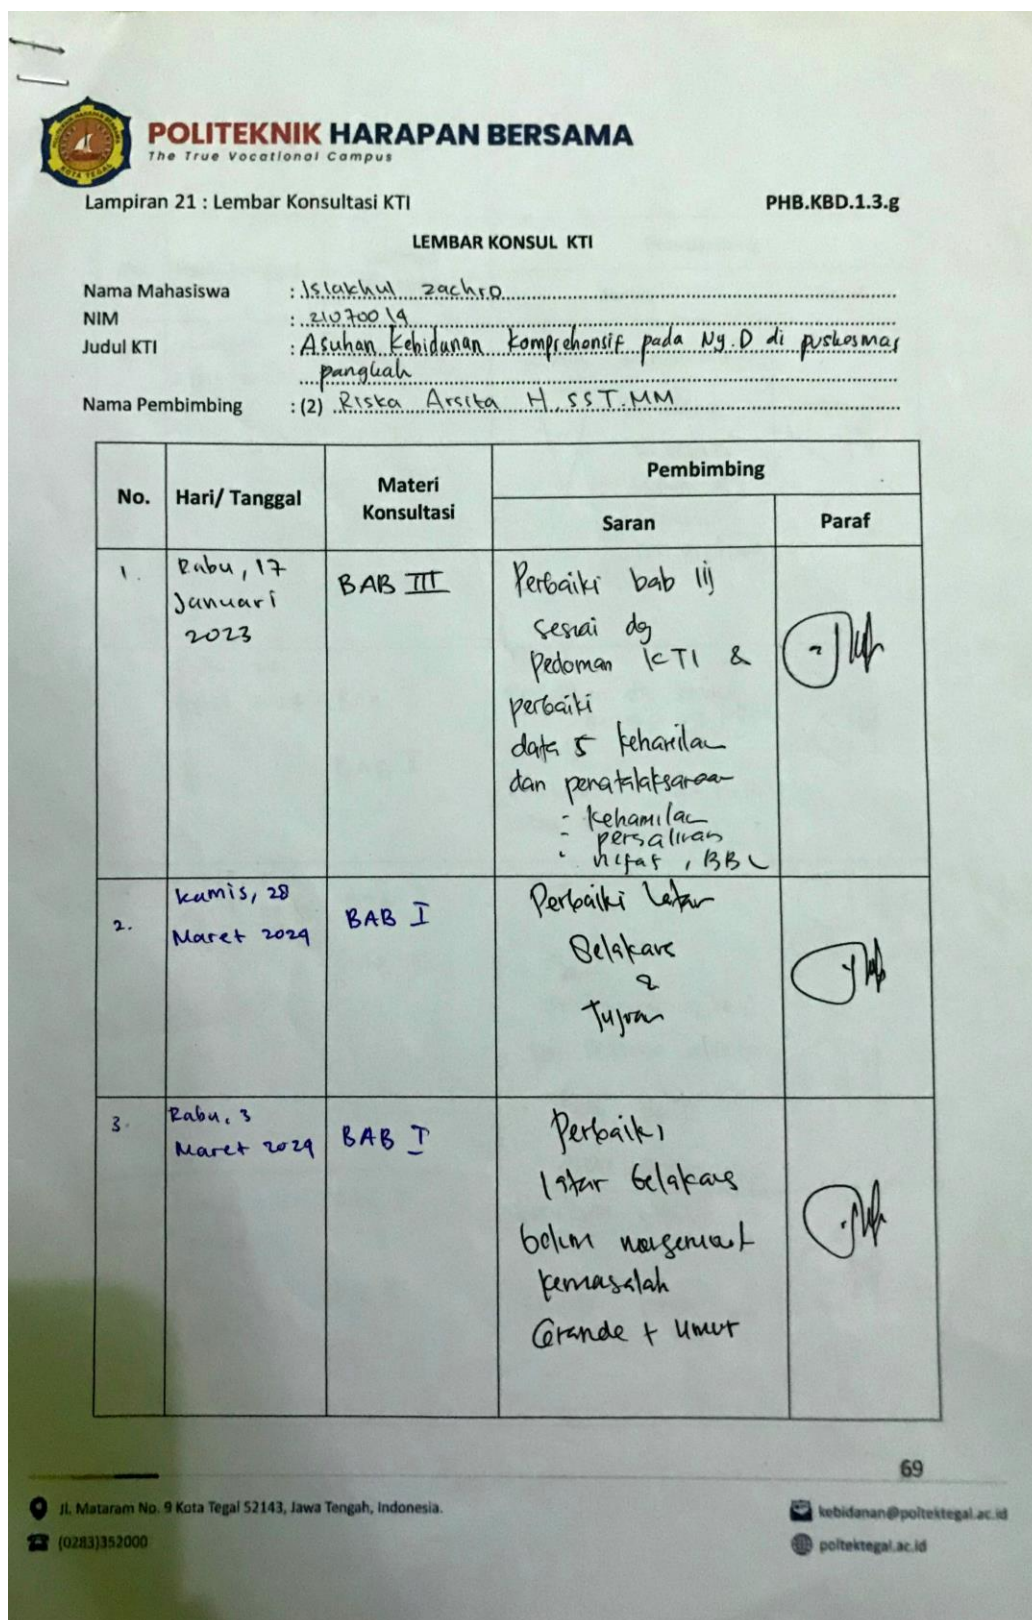 POLITEKNIK HARAPAN BERSAMA
The True Vocational Campus
Lampiran 21 : Lembar Konsultasi KTI PHB.KBD.1.3.g
LEMBAR KONSUL KTI
Nama Mahasiswa : Islakhul zachro
NIM : 21070019
Judul KTI : Asuhan Kebidanan Komprehensif pada Ny.D di puskesmas
pangkah
Nama Pembimbing : (2) Riska Arsita H.SST.MM
No. Hari/ Tanggal Materi Konsultasi Pembimbing
Saran Paraf
1. Rabu, 17
Januari
2023
BAB III
Perbaiki bab iij
sesuai dg
Pedoman KTI &
perbaiki
data 5 kehamilan
dan penatalaksanaan
- kehamilan
- persalinan
- nifas, BBL
2. Kamis, 28
Maret 2024
BAB I
Perbaiki Latar
Belakang
&
Tujuan
3. Rabu, 3
Maret 2024
BAB I
Perbaiki
latar belakang
belum
kemasalah
Grande + umur
69
Jl. Mataram No. 9 Kota Tegal 52143, Jawa Tengah, Indonesia.
(0283)352000
kebidanan@poltektegal.ac.id
poltektegal.ac.id